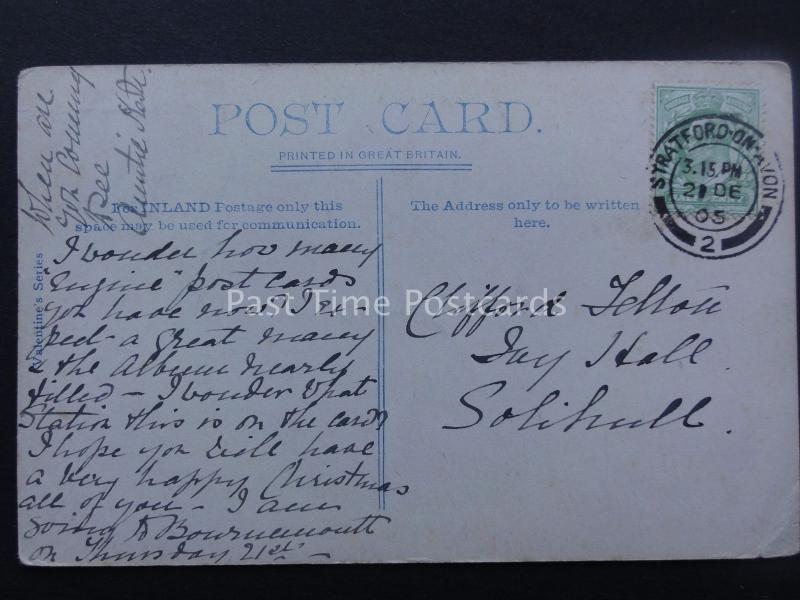 POST CARD.
PRINTED IN GREAT BRITAIN.
For INLAND Postage only this
space may be used for communication.
The Address only to be written
here.
Valentine's Series
STRATFORD-ON-AVON
3.15 PM
21 DE
05
2
I wonder how many
"Engine" post cards
you have now? I ex-
pect a great many
& the Album nearly
filled — I wonder what
Station this is on the card?
I hope you will have
a very happy Christmas
all of you — I am
going to Bournemouth
on Thursday 21st —
When are
you coming
Auntie Kate.
Clifford
Ivy Hall.
Solihull.
Past Time Postcards